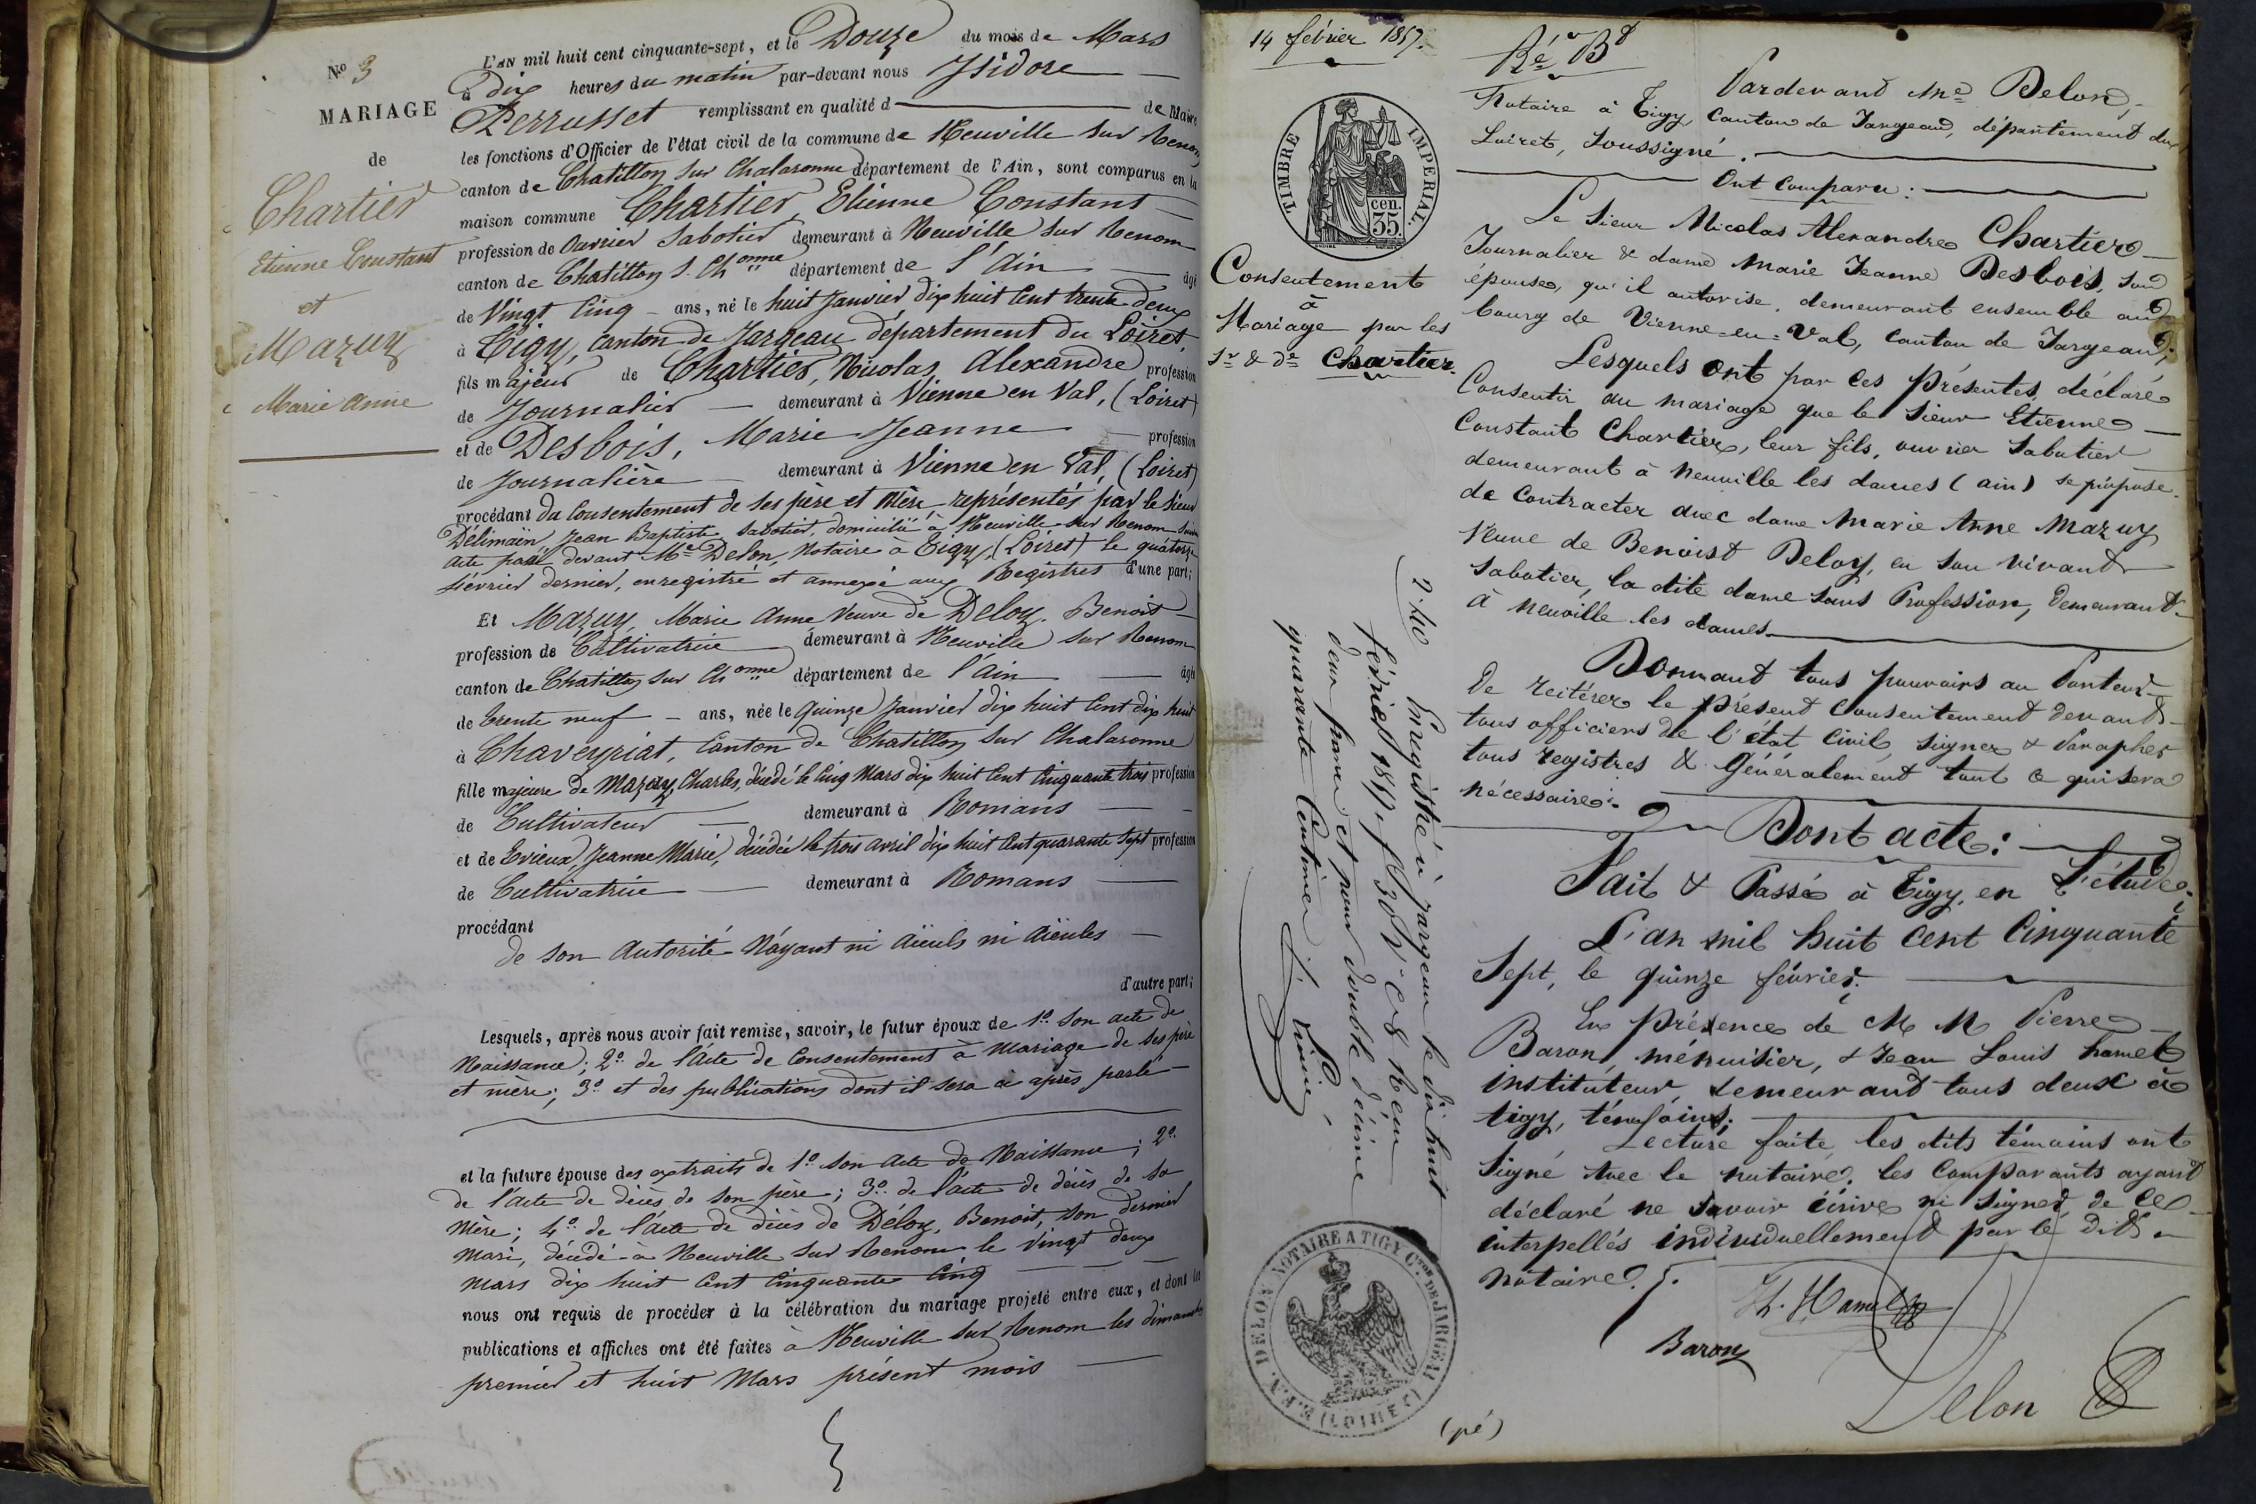 N.º 3
MARIAGE
de
Chartier
Etienne Constant
et
Mazuy
Marie Anne
L'AN mil huit cent cinquante-sept, et le Douze du mois de Mars
à dix heures du matin par-devant nous Isidore
Perrusset remplissant en qualité d de Maire
les fonctions d'Officier de l'état civil de la commune de Neuville sur Renom
canton de Chatillon sur Chalaronne département de l'Ain, sont comparus en la
maison commune Chartier, Etienne Constant
profession de Ouvrier Sabotier demeurant à Neuville sur Renom
canton de Chatillon s. Chonne département de l'Ain âgé
de Vingt Cinq ans, né le huit Janvier dix huit Cent trente deux
à Tigy, Canton de Jargeau département du Loiret,
fils majeur de Chartier, Nicolas Alexandre profession
de Journalier demeurant à Vienne en Val, (Loiret)
et de Desbois, Marie Jeanne profession
de Journalière demeurant à Vienne en Val, (Loiret)
procédant du Consentement de ses père et mère représentés par le sieur
Délimain Jean Baptiste Sabotier, domicilié à Neuville sur Renom suivant
acte passé devant Me Delon, Notaire à Tigy, (Loiret) le quatorze
février dernier, enregistré et annexé aux Registres d'une part;
Et Mazuy, Marie Anne Veuve de Deloy, Benoit
profession de Cultivatrice demeurant à Neuville sur Renom
canton de Chatillon sur Chonne département de l'Ain âgée
de trente neuf ans, née le quinze Janvier dix huit Cent dix huit
à Chaveyriat, Canton de Chatillon sur Chalaronne
fille majeure de Mazuy, Charles, décédé le Cinq Mars dix huit Cent Cinquante trois profession
de Cultivateur demeurant à Romans
et de Evieux, Jeanne Marie, décédée le trois avril dix huit Cent quarante Sept profession
de Cultivatrice demeurant à Romans
procédant
de son autorité N'ayant ni aïeuls ni aïeules
d'autre part;
Lesquels, après nous avoir fait remise, savoir, le futur époux de 1º Son acte de
Naissance; 2º de l'Acte de Consentement à Mariage de ses père
et mère; 3º et des publications dont il sera ci après parlé
et la future épouse des extraits de 1º son Acte de Naissance; 2º
de l'Acte de décès de son père; 3º de l'acte de décès de sa
Mère; 4º de l'Acte de décès de Déloy, Benoit, son dernier
mari, décédé à Neuville sur Renom le Vingt deux
Mars dix huit Cent Cinquante Cinq
nous ont requis de procéder à la célébration du mariage projeté entre eux, et dont les
publications et affiches ont été faites à Neuville sur Renom les dimanches
premier et huit Mars présent mois
14 février 1857.
Bé Bt
TIMBRE IMPERIAL.
35 cen.
Consentement
à
Mariage par les
Sr & De Chartier.
Pardevant Me Delon,
Notaire à Tigy, Canton de Jargeau, département du
Loiret, Soussigné.
Ont Comparu:
Le Sieur Nicolas Alexandre Chartier
Journalier & dame Marie Jeanne Desbois, son
épouse, qu'il autorise, demeurant ensemble au
bourg de Vienne-en-Val, Canton de Jargeau;
Lesquels ont par ces présentes, déclaré
Consentir au mariage que le Sieur Etienne
Constant Chartier, leur fils, ouvrier Sabotier
demeurant à Neuville les dames (ain) se propose
de Contracter avec dame Marie Anne Mazuy
Veuve de Benoist Deloy, en son vivant
Sabotier, la dite dame sans Profession, demeurant
à Neuville les dames.
Donnant tous pouvoirs au Porteur
De reitérer le présent Consentement devant
tous officiers de l'état Civil, signer & Parapher
tous registres & généralement tout ce qui sera
nécessaire.
Dont acte:
Fait & Passé à Tigy, en l'étude,
L'an mil huit Cent Cinquante
Sept, le quinze février.
En présence de M M Pierre
Baron, menuisier, & Jean Louis hamel
instituteur demeurant tous deux à
tigy, témoins;
Lecture faite, les dits témoins ont
Signé avec le notaire, les Comparants ayant
déclaré ne Savoir écrire ni Signer de ce
interpellés individuellement par le dit
notaire.
2.40
Enregistré à jargeau le dix huit
février 1857
deux francs et pour double décime
quarante Centimes
Baron
Hamel
Delon
DELON NOTAIRE A TIGY Cton DE JARGEAU
(LOIRET)
(pé)